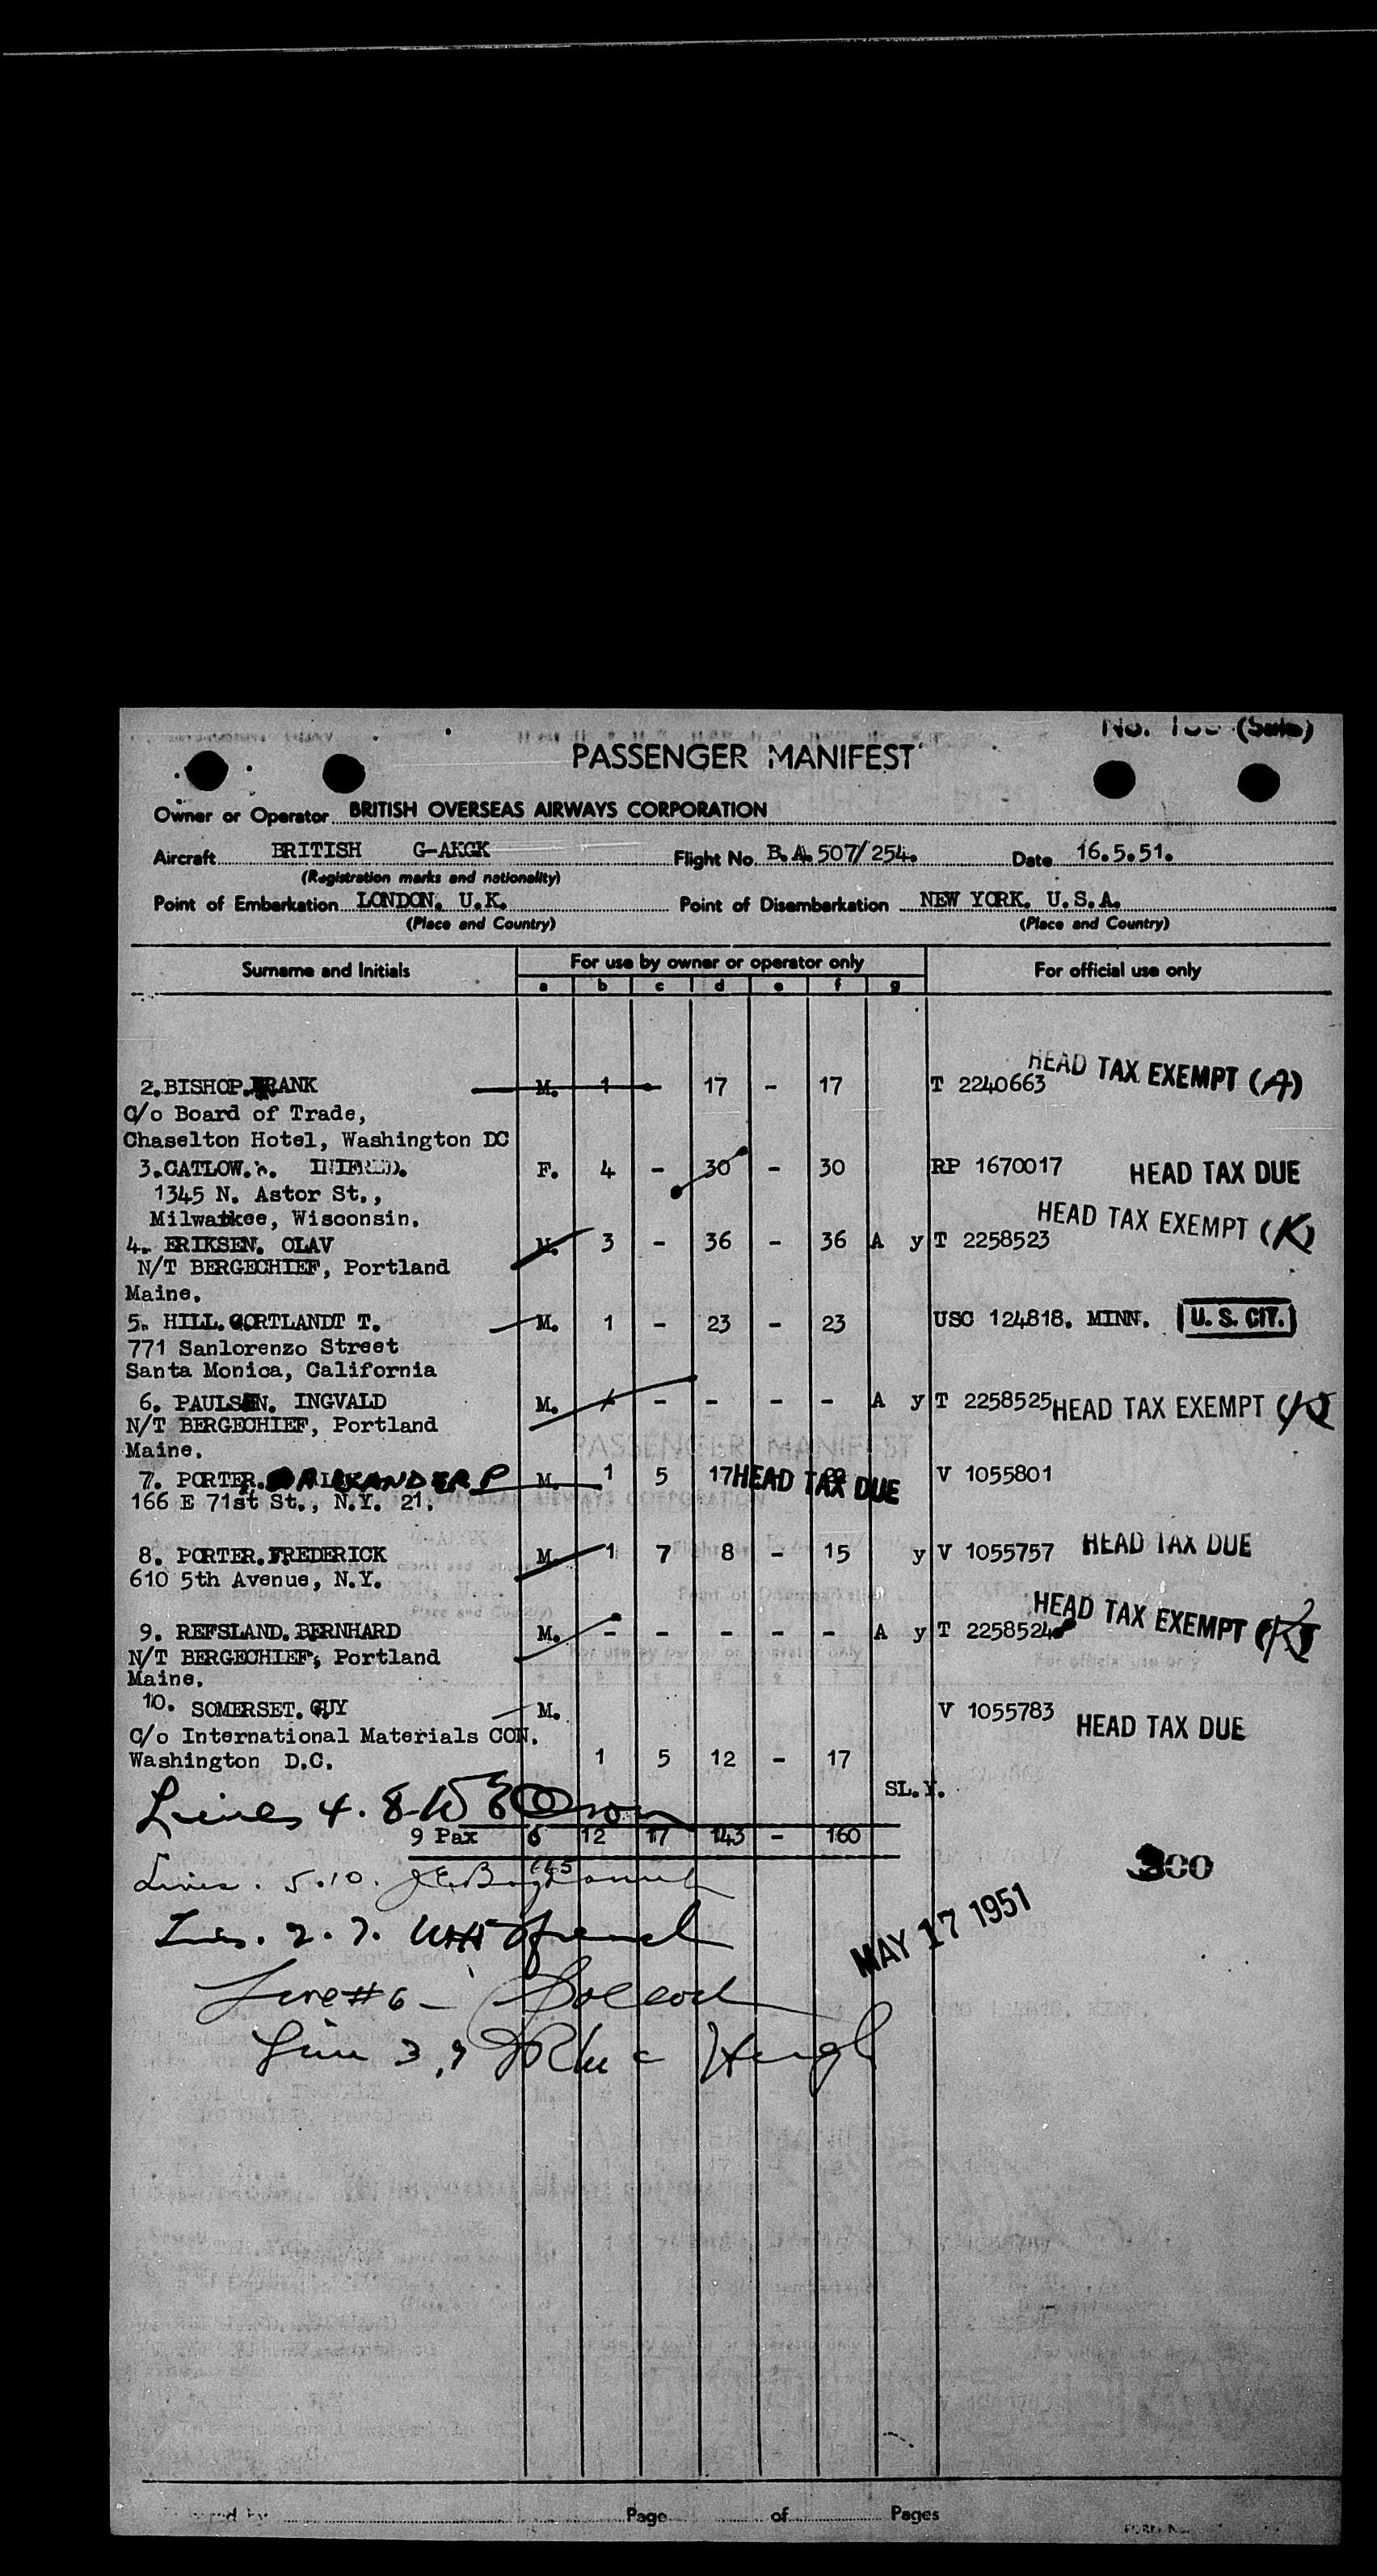 PASSENGER MANIFEST
Owner or Operator BRITISH OVERSEAS AIRWAYS CORPORATION
Aircraft BRITISH G-AKGK Flight No. B.A. 507/254. Date 16.5.51.
(Registration marks and nationality)
Point of Embarkation LONDON. U.K. Point of Disembarkation NEW YORK. U.S.A.
(Place and Country) (Place and Country)
Surname and Initials For use by owner or operator only For official use only
a b c d e f g
2. BISHOP. FRANK M. 1 - 17 - 17 T 2240663 HEAD TAX EXEMPT (A)
C/o Board of Trade,
Chaselton Hotel, Washington DC
3. CATLOW. F. 4 - 30 - 30 RP 1670017 HEAD TAX DUE
1345 N. Astor St.,
Milwaukee, Wisconsin.
4. ERIKSEN. OLAV M. 3 - 36 - 36 A y T 2258523 HEAD TAX EXEMPT (K)
N/T BERGECHIEF, Portland
Maine.
5. HILL. CORTLANDT T. M. 1 - 23 - 23 USC 124818. MINN. U. S. CIT.
771 Sanlorenzo Street
Santa Monica, California
6. PAULSEN. INGVALD M. - - - - - A y T 2258525 HEAD TAX EXEMPT (K)
N/T BERGECHIEF, Portland
Maine.
7. PORTER. M. 1 5 17 HEAD TAX DUE V 1055801
166 E 71st St., N.Y. 21.
8. PORTER. FREDERICK M. 1 7 8 - 15 y V 1055757 HEAD TAX DUE
610 5th Avenue, N.Y.
9. REFSLAND. BERNHARD M. - - - - - A y T 2258524 HEAD TAX EXEMPT (K)
N/T BERGECHIEF, Portland
Maine.
10. SOMERSET. GUY M. V 1055783 HEAD TAX DUE
C/o International Materials CON.
Washington D.C. 1 5 12 - 17
SL.Y.
Lines 4. 8
9 Pax 6 12 17 143 - 160
300
Lines. 5.10.
MAY 17 1951
Lines. 2. 7.
Line #6 -
Line 3, 9
Page of Pages